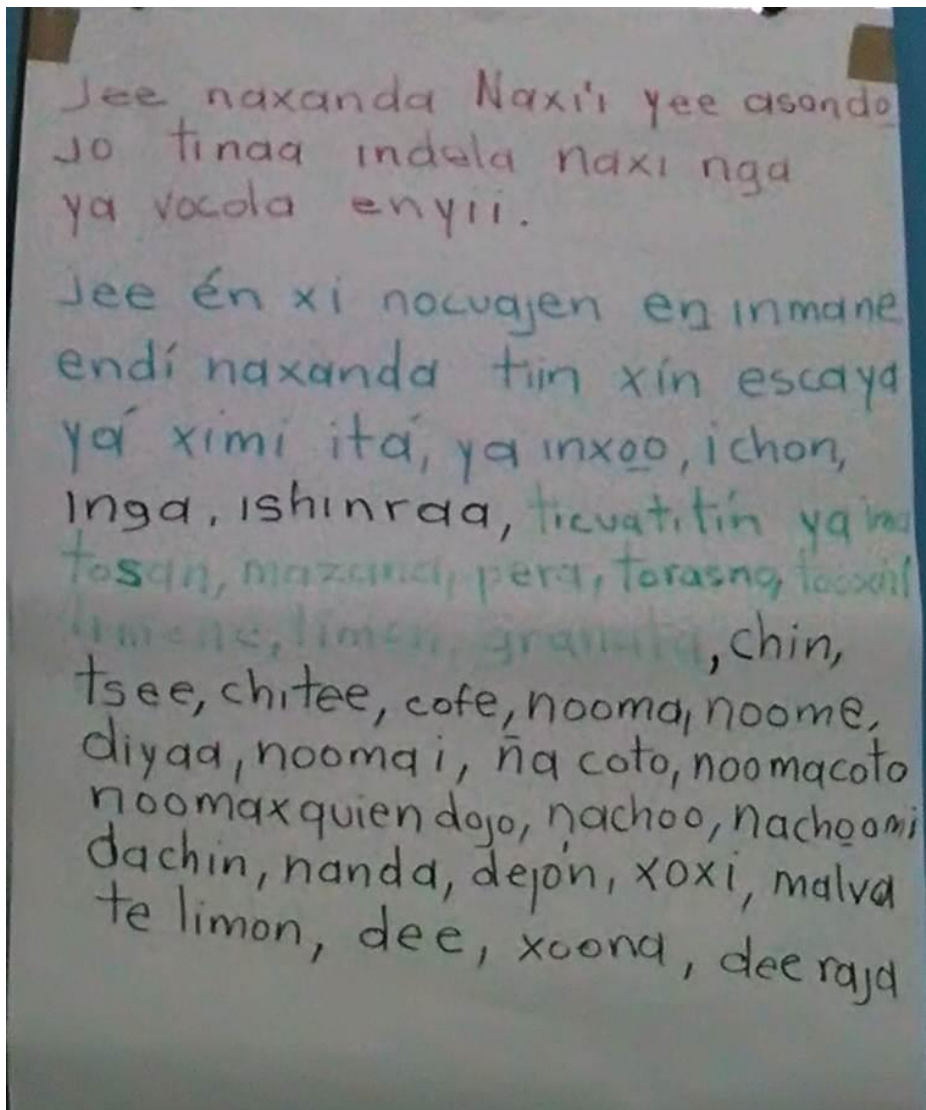 Jee naxanda Naxi'i yee asondo
Jo tinaa indela naxi nga
ya vocola enyii.
Jee én xi nocuajen en inmane
endí naxanda tiin xín escaya
yá ximi itá, ya inxoo, ichon,
Inga, ishinraa, ticuatitín ya
tosan, mazana, pera, torasno,
limene, limon, granada, chin,
tsee, chitee, cofe, nooma, noome,
diyaa, noomai, ña coto, noomacoto
noomaxquiendojo, nachoo, nachoomi
dachin, nanda, dejón, xoxi, malva
te limon, dee, xoona, dee raja